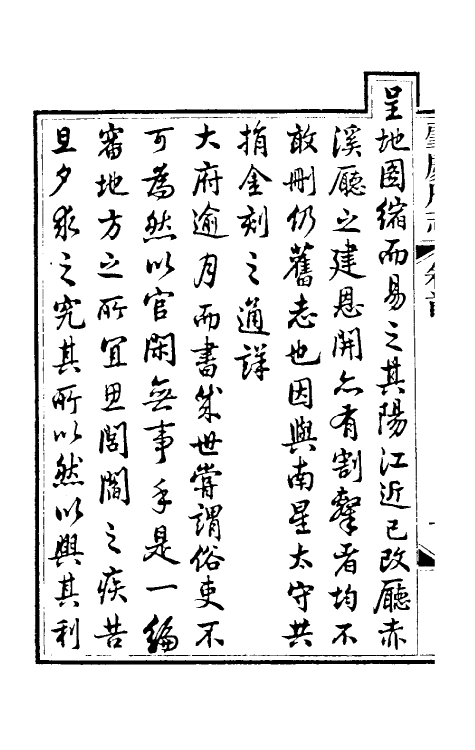 呈地圖縮而易之其陽江近已改廳赤
溪廳之建恩開亦有割鼕者均不
敢刪仍舊志也因與南星太守共
捐金刻之通詳
大府逾月而書成世嘗謂俗吏不
可為然以官閑無事手是一編
審地方之所宜思閭閻之疾苦
旦夕求之究其所以然以興其利